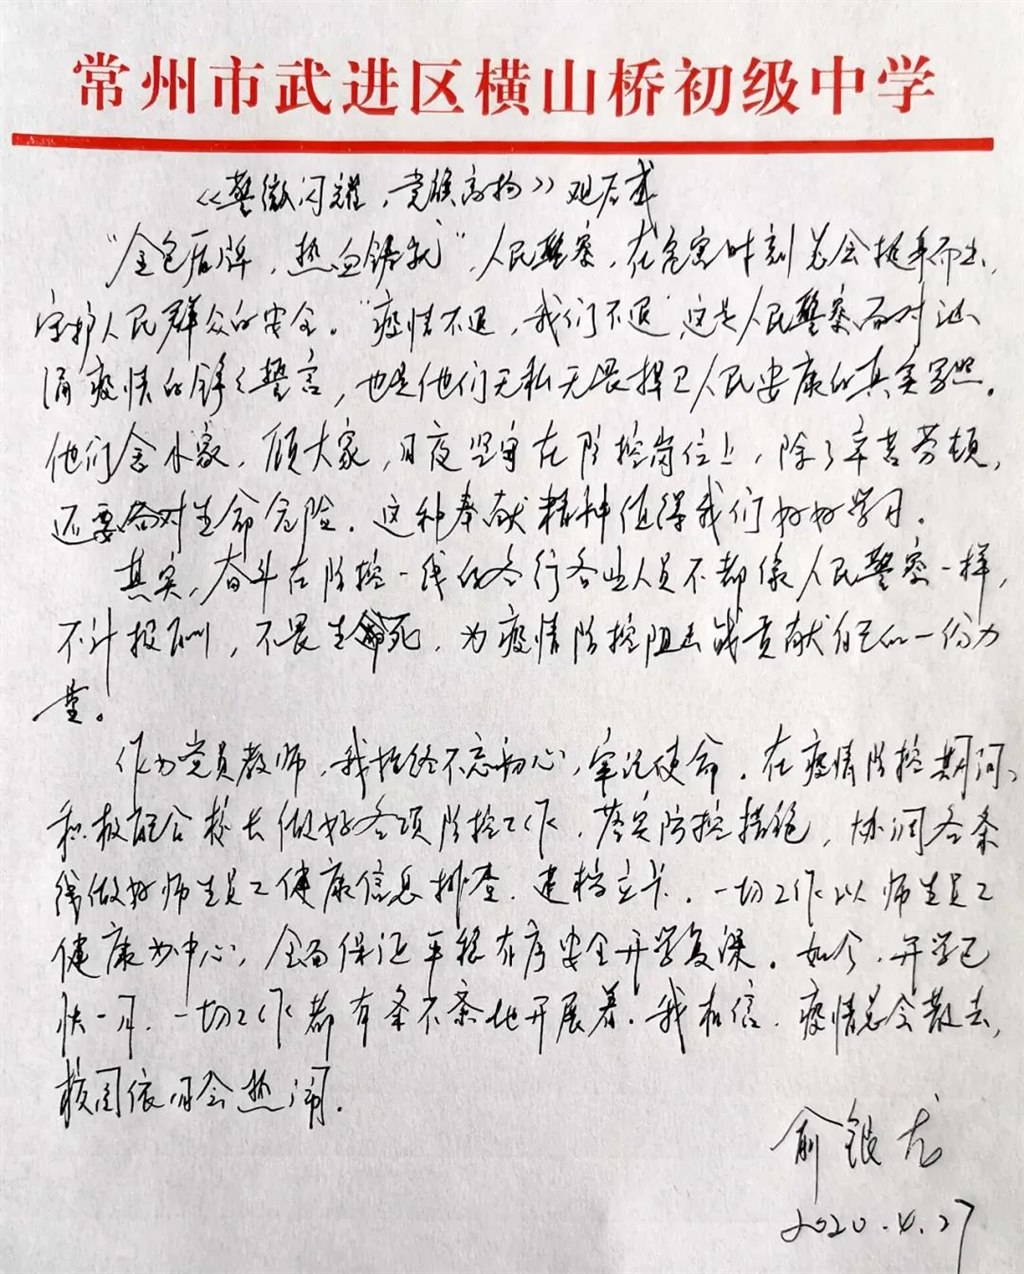 常州市武进区横山桥初级中学
《警徽闪耀，党旗高扬》观后感
“金色盾牌，热血铸就”，人民警察，在危害时刻总会挺身而出，
守护人民群众的安全。“疫情不退，我们不退”这是人民警察面对汹
涌疫情的铮铮誓言，也是他们无私无畏捍卫人民安康的真实写照。
他们舍小家，顾大家，日夜坚守在防控岗位上，除了辛苦劳顿，
还要面对生命危险。这种奉献精神值得我们好好学习。
其实，奋斗在防控一线的各行各业人员不都像人民警察一样，
不计报酬，不畏生死，为疫情防控阻击战贡献自己的一份力
量。
作为党员教师，我始终不忘初心，牢记使命。在疫情防控期间，
积极配合校长做好各项防控工作，落实防控措施，协调各条
线做好师生员工健康信息排查，建档立卡。一切工作以师生员工
健康为中心，全面保证平稳有序安全开学复课。如今，开学已
快一月，一切工作都有条不紊地开展着。我相信，疫情总会散去，
校园依旧会热闹。
俞银龙
2020.4.27